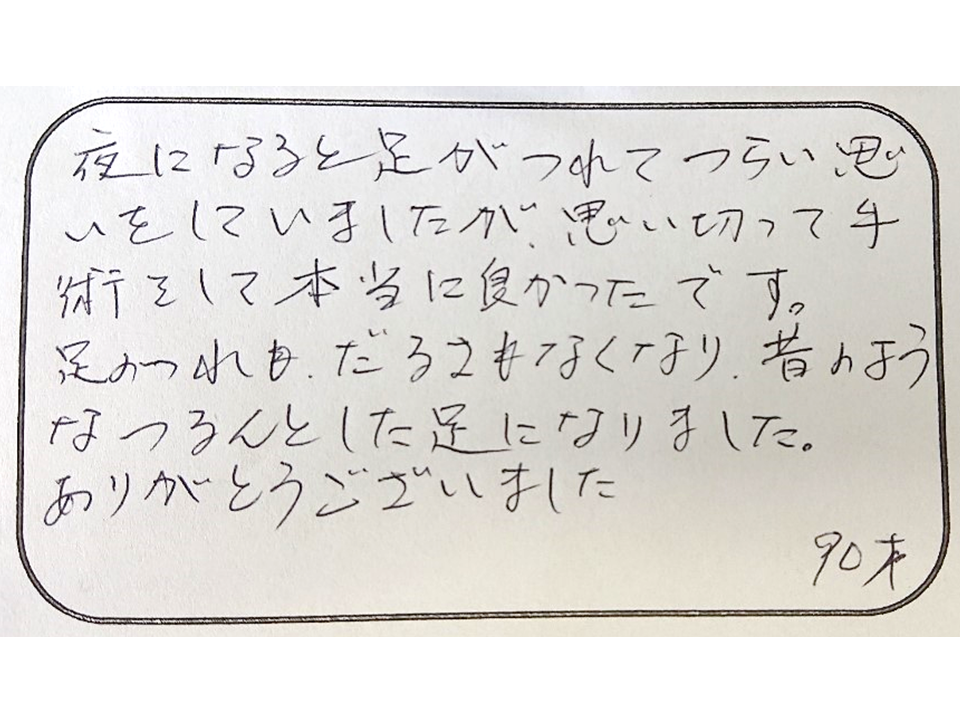 夜になると足がつれてつらい思
いをしていましたが、思い切って手
術をして本当に良かったです。
足のつれも、だるさもなくなり、昔のよう
なつるんとした足になりました。
ありがとうございました
90才